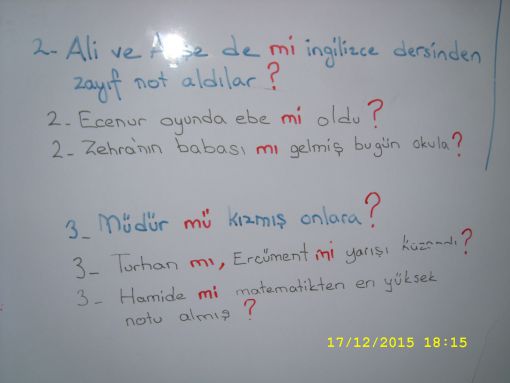 2- Ali ve de mi ingilizce dersinden
zayıf not aldılar?
2- Ecenur oyunda ebe mi oldu?
2- Zehra'nın babası mı gelmiş bugün okula?
3- Müdür mü kızmış onlara?
3- Turhan mı, Ercüment mi yarışı ?
3- Hamide mi matematikten en yüksek
notu almış?
17/12/2015 18:15